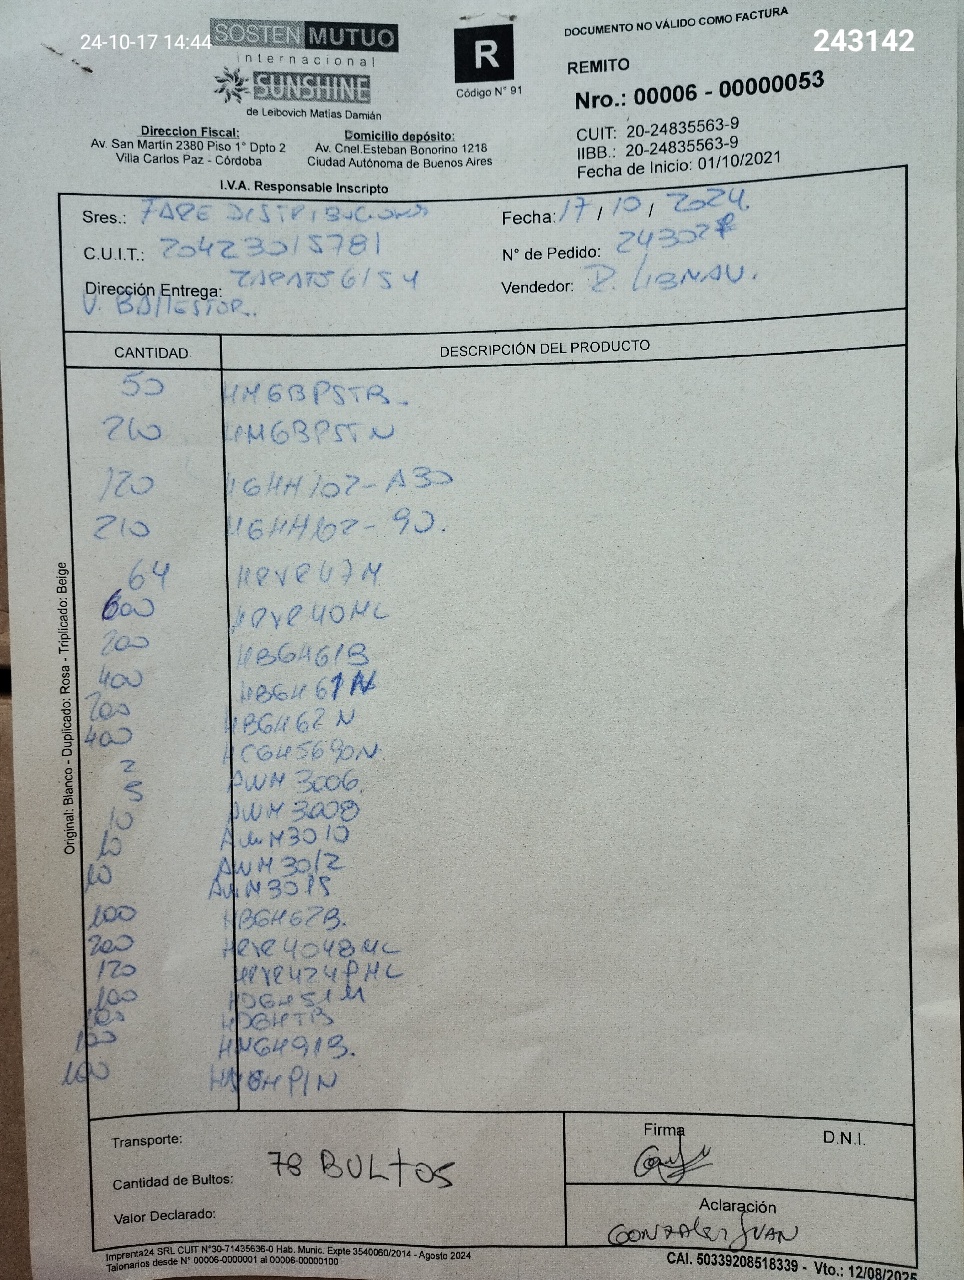 24-10-17 14:44
243142
SOSTEN MUTUO
internacional
SUNSHINE
de Leibovich Matias Damián
R
Código N° 91
DOCUMENTO NO VÁLIDO COMO FACTURA
REMITO
Nro.: 00006 - 00000053
CUIT: 20-24835563-9
IIBB.: 20-24835563-9
Fecha de Inicio: 01/10/2021
Direccion Fiscal:
Av. San Martin 2380 Piso 1° Dpto 2
Villa Carlos Paz - Córdoba
Domicilio depósito:
Av. Cnel.Esteban Bonorino 1218
Ciudad Autónoma de Buenos Aires
I.V.A. Responsable Inscripto
Sres.: FAPE DISTRIBUCIONES
Fecha: 17 / 10 / 2024.
C.U.I.T.: 20423015781
N° de Pedido: 24302
Dirección Entrega: ZAPATS 6154
V. BALLESTER.
Vendedor: P. LIBNAU.
CANTIDAD DESCRIPCIÓN DEL PRODUCTO
50 HMGBPSTB.
210 HMGBPSTN
120 HGHH102-A30
210 HGHH102-90.
64 HPVR47M
600 HPVR40ML
200 HBGH61B
400 HBGH61N
200 HBGH62N
400 HCGH5690N
2 AWM 3006.
5 AWM 3008
10 AWM3010
10 AWM 3012
10 AWM3015
100 HBGH62B.
200 HPVR4048ML
120 HPVR424PML
100 HDGH51M
100 HDGHTB
100 HNGH91B.
100 GHP1N
Original: Blanco - Duplicado: Rosa - Triplicado: Beige
Transporte:
Cantidad de Bultos: 78 BULTOS
Valor Declarado:
Firma
D.N.I.
Aclaración
GONZALEZ JUAN
Imprenta24 SRL CUIT N°30-71435636-0 Hab. Munic. Expte 3540060/2014 - Agosto 2024
Talonarios desde N° 00006-0000001 al 00006-00000100
CAI. 50339208518339 - Vto.: 12/08/2025